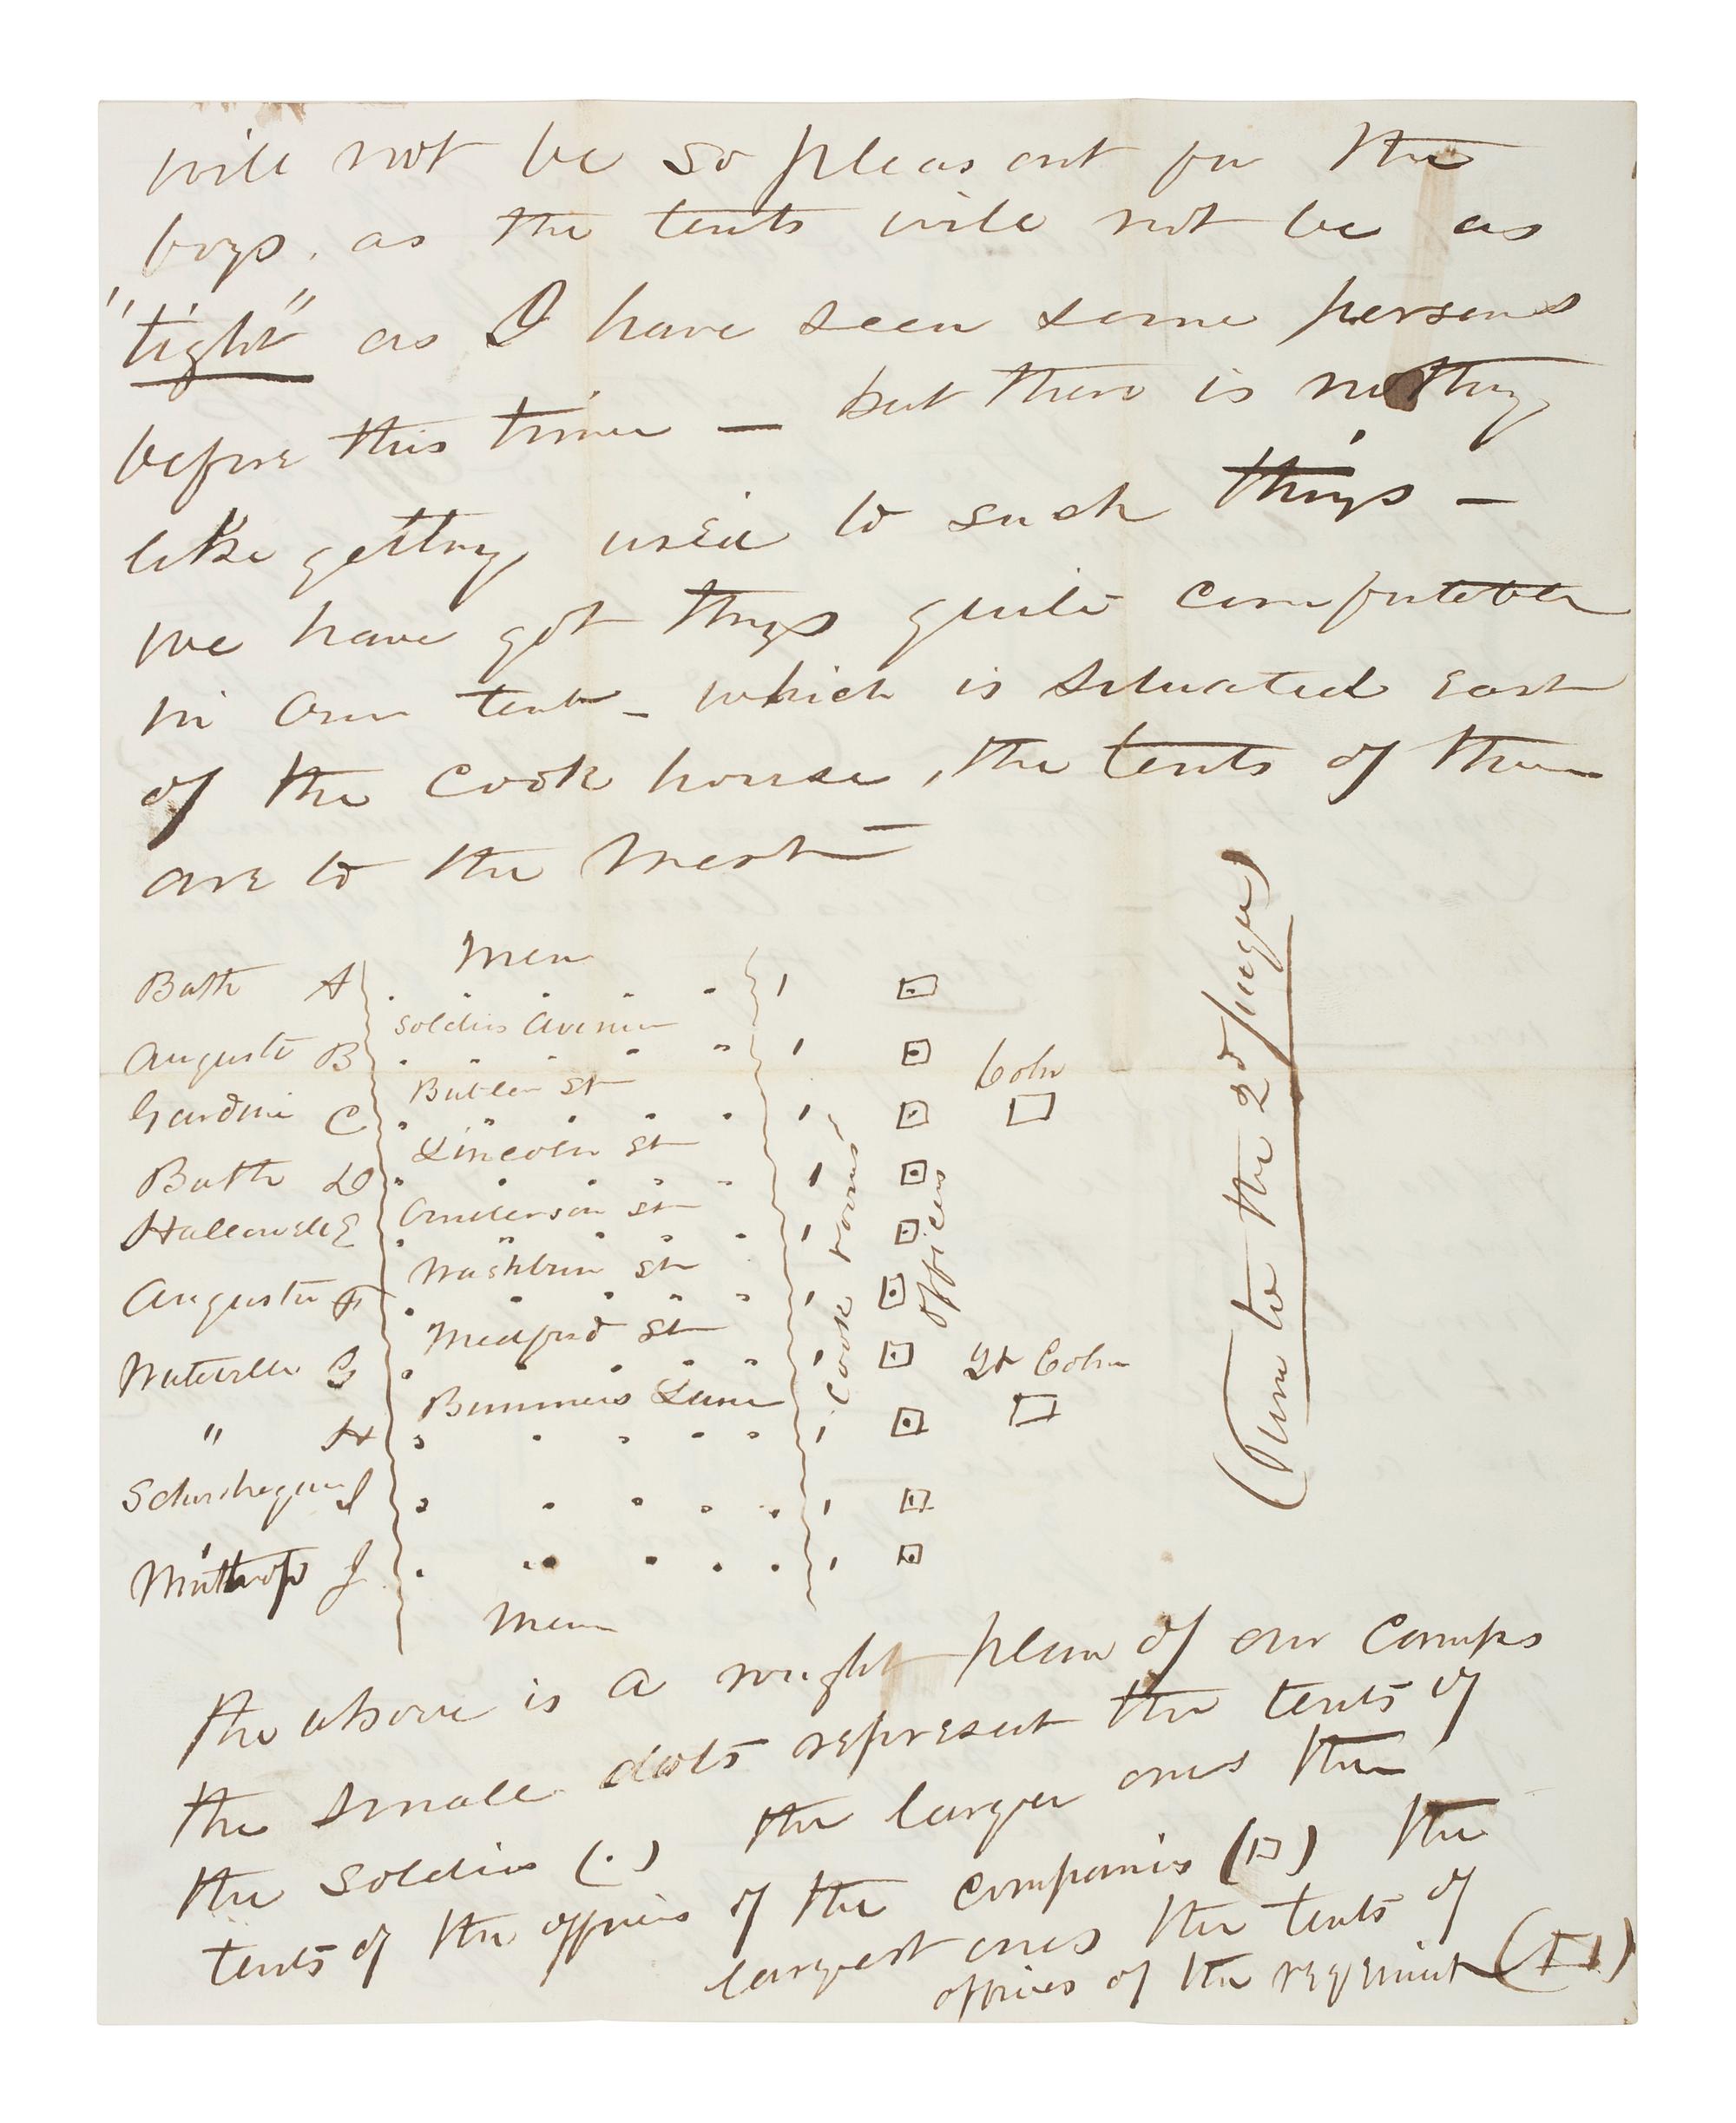 will not be so pleasant for the
boys, as the tents will not be as
"tight" as I have seen some persons
before this time — but there is nothing
like getting used to such things —
we have got things quite comfortable
in our tent – which is situated east
of the cook house, the tents of the men
are to the West —
Men
Bath A
Soldiers Avenue
Augusta B
Butler St
Colnl
Gardiner C
Lincoln St
Bath D
Anderson St
Hallowell E
Washburn St
Augusta F
Medford St
Waterville G
Lt Colnl
Bummers Lane
" H
Schowhegan I
Winthrop J
Men
Cook rooms
officers
(Turn to the 2d page)
The above is a rough plan of our camps
the small dots represent the tents of
the soldiers (.) the larger ones the
tents of the officers of the companies (□) the
largest ones the tents of
officers of the regiment (□)